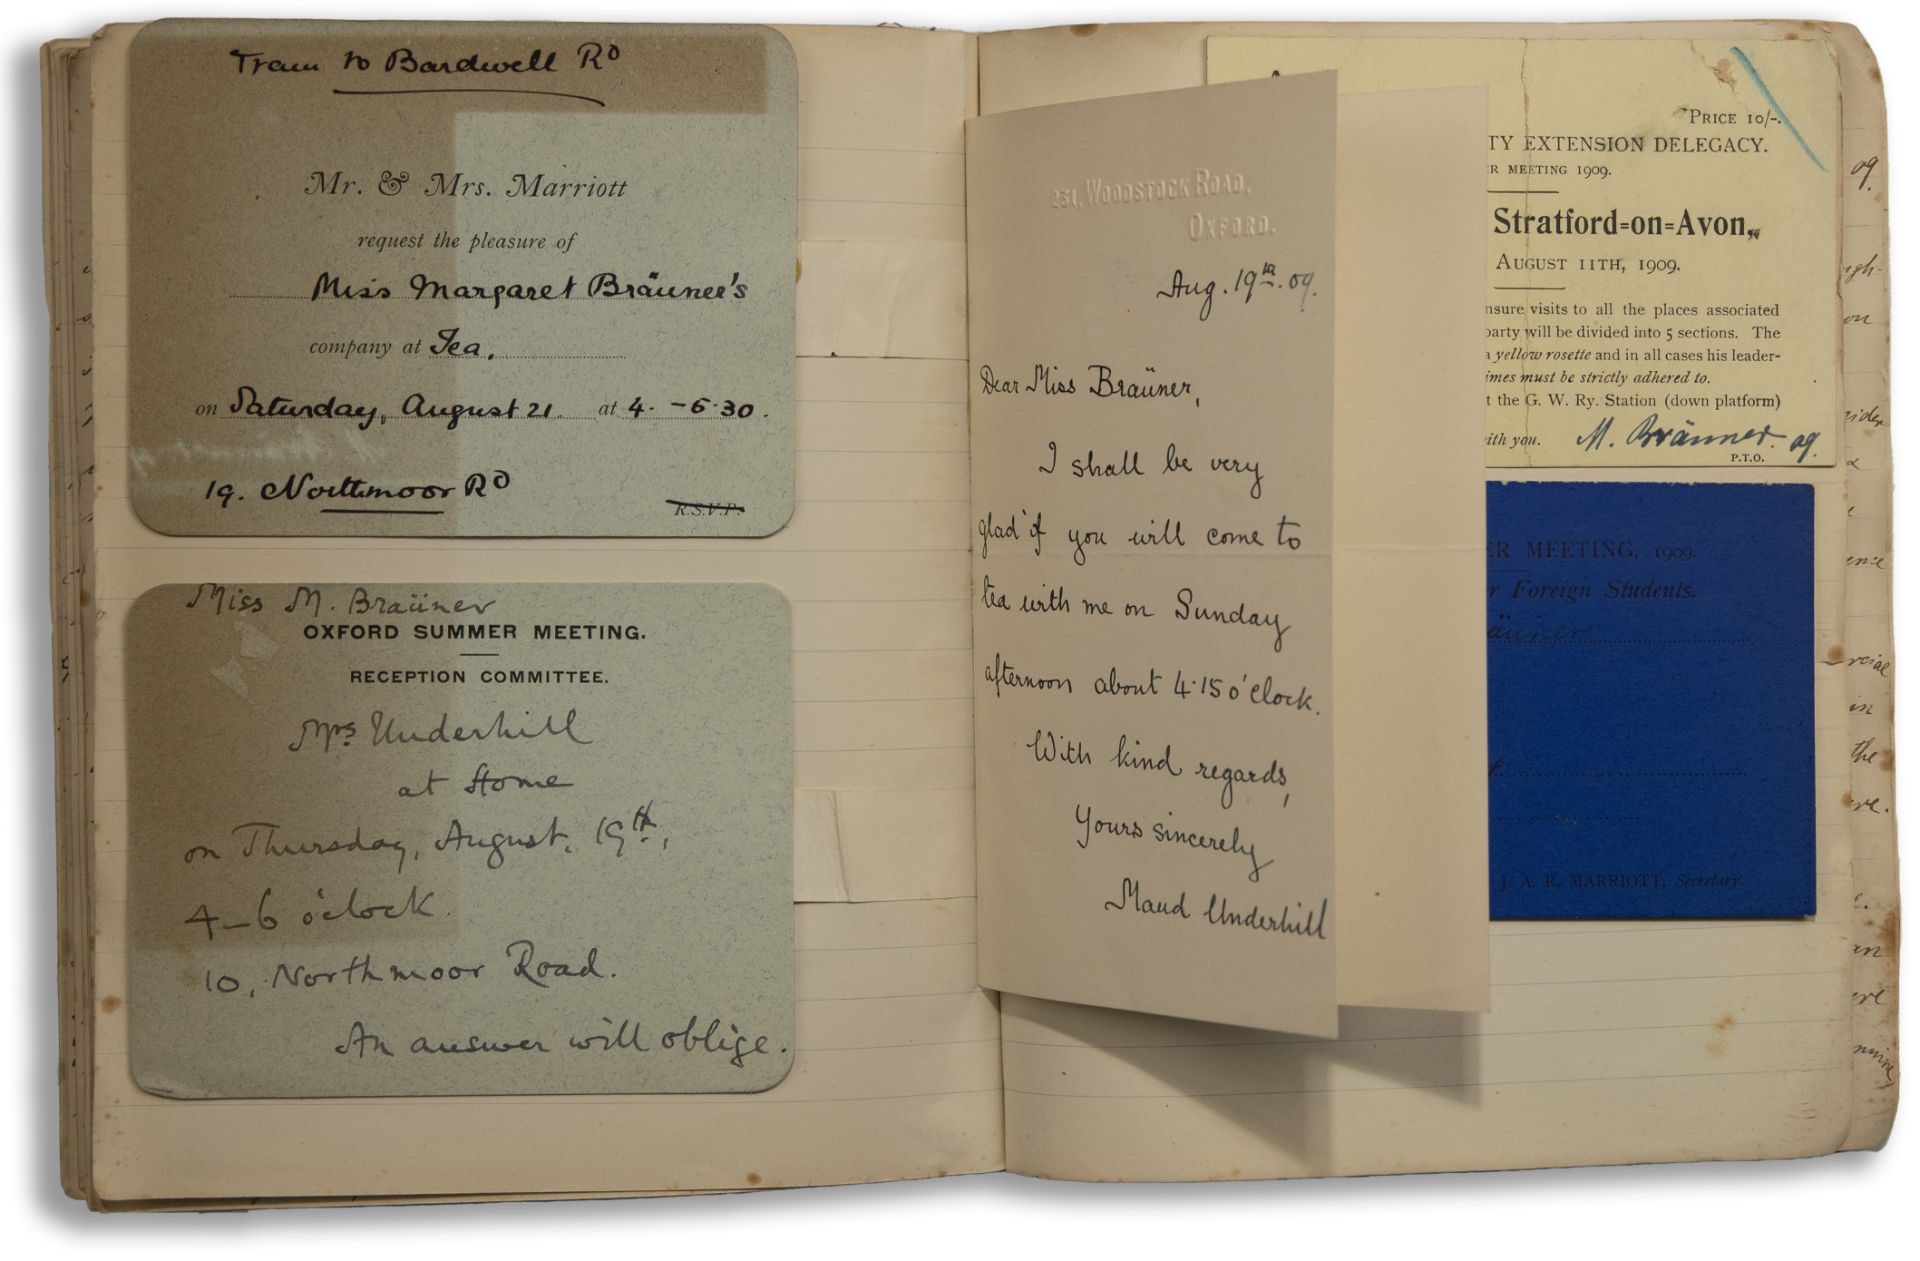 Tram to Bardwell Rd
Mr. & Mrs. Marriott
request the pleasure of
Miss Margaret Bräuner's
company at Tea.
on Saturday, August 21. at 4. - 6.30.
19. Northmoor Rd
R.S.V.P.
Miss M. Braüner
OXFORD SUMMER MEETING.
RECEPTION COMMITTEE.
Mrs Underhill
at Home
on Thursday, August, 19th,
4–6 o'clock.
10, Northmoor Road.
An answer will oblige.
231, WOODSTOCK ROAD,
OXFORD.
Aug. 19th. 09.
Dear Miss Braüner,
I shall be very
glad if you will come to
tea with me on Sunday
afternoon about 4.15 o'clock.
With kind regards,
Yours sincerely
Maud Underhill
PRICE 10/-.
TY EXTENSION DELEGACY.
R MEETING 1909.
Stratford=on=Avon,
AUGUST 11TH, 1909.
nsure visits to all the places associated
party will be divided into 5 sections. The
a yellow rosette and in all cases his leader-
imes must be strictly adhered to.
t the G. W. Ry. Station (down platform)
ith you. M. Bräuner. 09.
P.T.O.
ER MEETING, 1909.
r Foreign Students.
äuner
J. A. R. MARRIOTT, Secretary.
09.
on
in
the